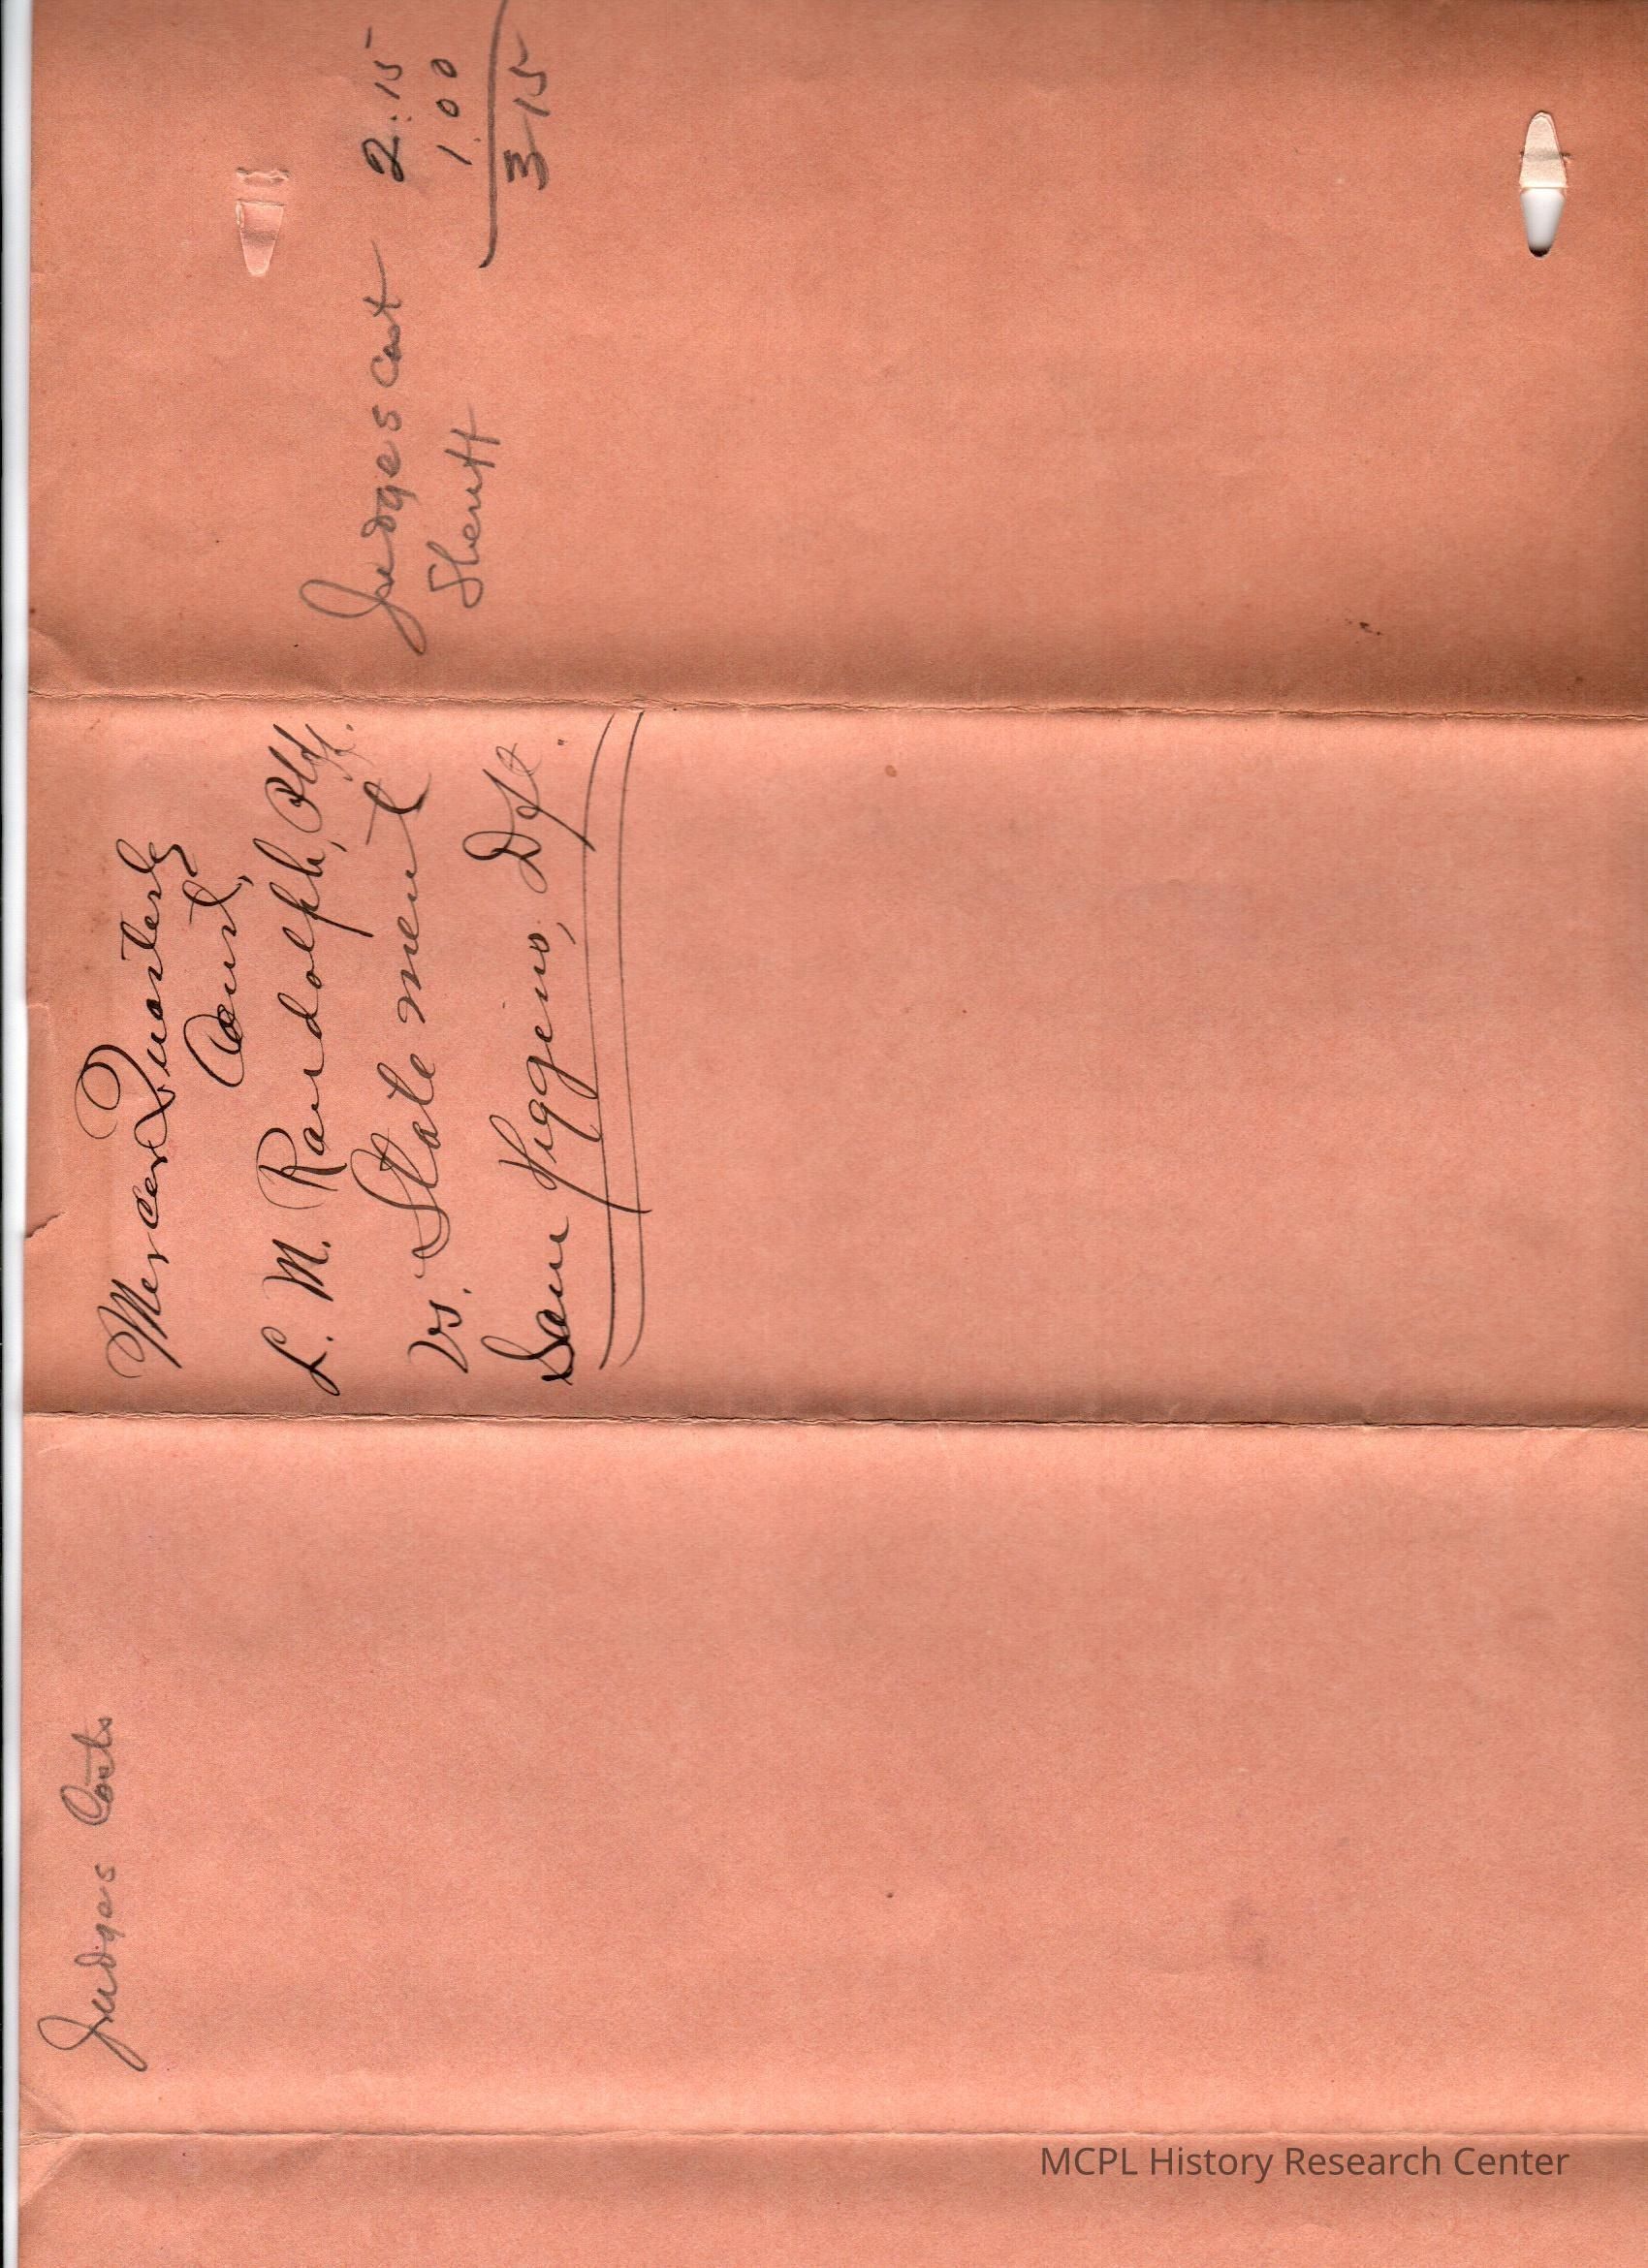 Judges Costs
Mercer Quarterly
Court,
L. M. Randolph, Pltff.
Vs. Statement
Sam Higgins, Dft.
Judges Cost 2.15
Sheriff 1.00
3 15
MCPL History Research Center